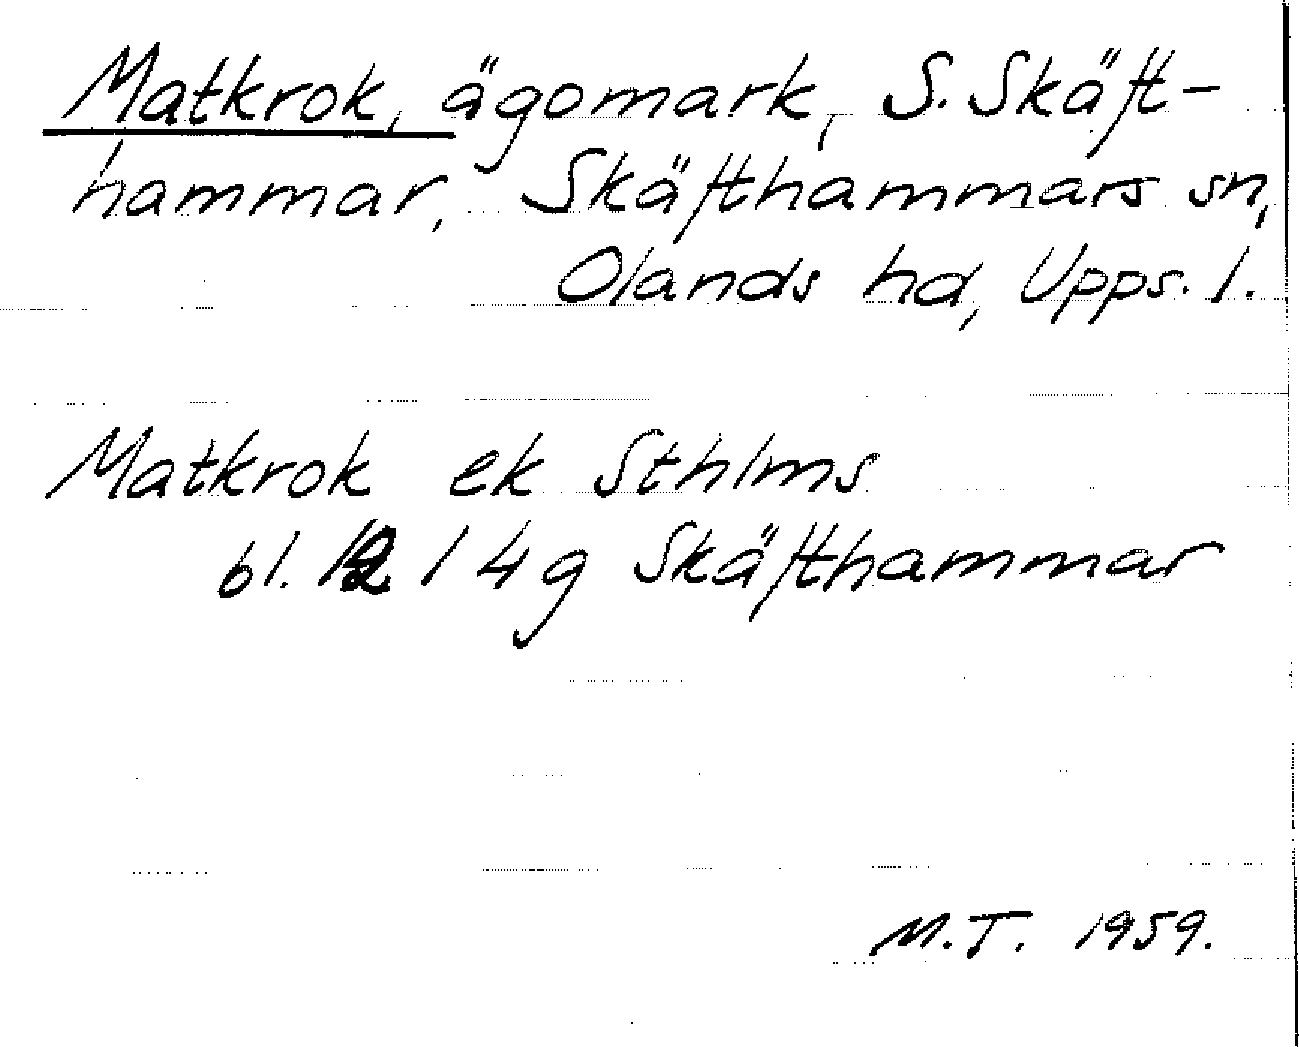 Matkrok, ägomark, S. Skäft-
hammar, Skäfthammars sn,
Olands hd, Upps. l.
Matkrok ek Sthlms
bl. 12 I 4 g Skäfthammar
M.T. 1959.